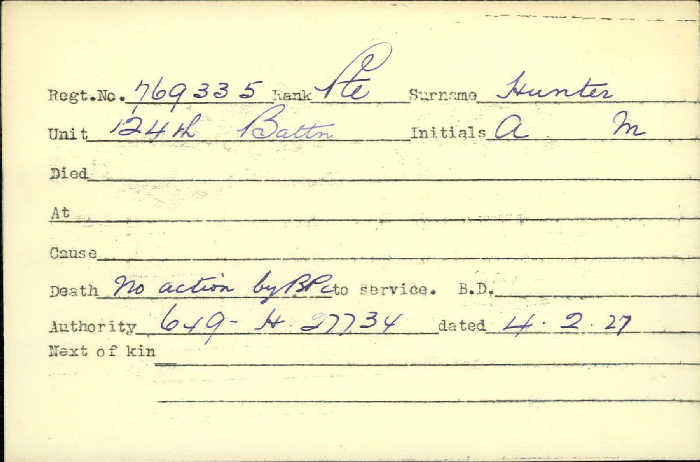 Regt.No. 769335 Rank Pte Surname Hunter
Unit 124th Battn Initials A M
Died
At
Cause
Death No action by BPC to service. B.D.
Authority 649-H. 27734 dated 4.2.27
Next of kin